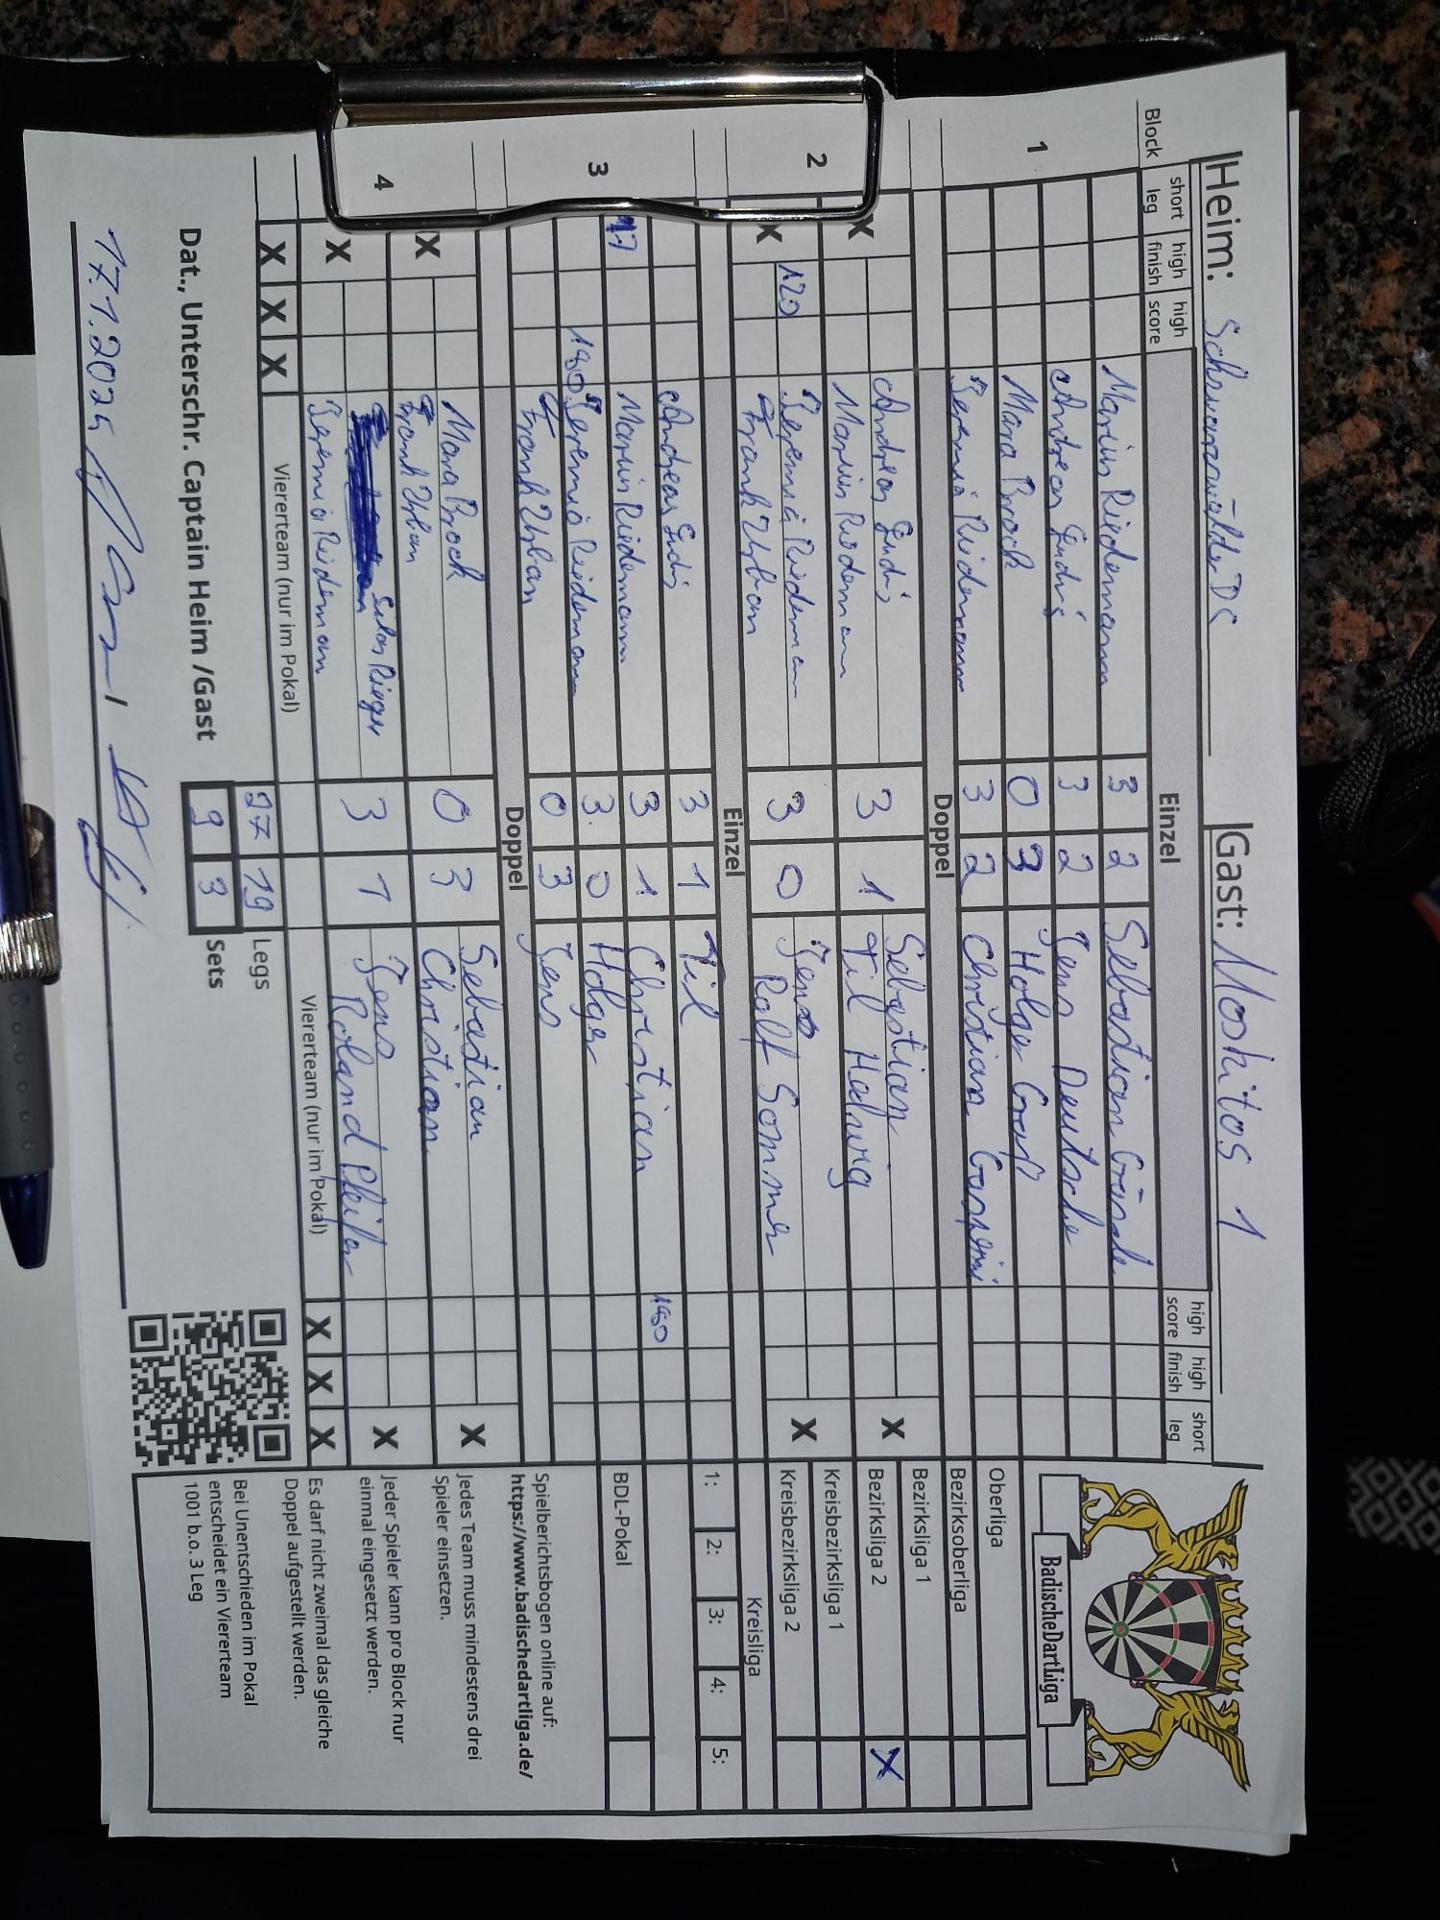 Heim: Schwarzwälder DC Gast: Moskitos 1
Block short leg high finish high score Einzel high score high finish short leg
1
Marius Riedemann 3 2 Sebastian
Andreas 3 2 Jens Deutsche
Mara Brock 0 3 Holger
Jeremia Riedemann 3 2 Christian
Doppel
2
X Andreas 3 1 Sebastian X
Marius Riedemann Til
X 120 Jeremia Riedemann 3 0 Jens X
Frank Urban Ralf Sommer
Einzel
3
Andreas 3 1 Til
17 Marius Riedemann 3 1 Christian 180
180 Jeremia Riedemann 3 0 Holger
Frank Urban 0 3 Jens
Doppel
4
X Mara Brock 0 3 Sebastian X
Frank Urban Christian
X Silas Rieger 3 1 Jens X
Jeremia Riedemann Roland Pfeifer
X X X Viererteam (nur im Pokal) Viererteam (nur im Pokal) X X X
27 19 Legs
9 3 Sets
Dat., Unterschr. Captain Heim /Gast
17.1.2025
BadischeDartLiga
Oberliga
Bezirksoberliga
Bezirksliga 1
Bezirksliga 2 X
Kreisbezirksliga 1
Kreisbezirksliga 2
Kreisliga
1: 2: 3: 4: 5:
BDL-Pokal
Spielberichtsbogen online auf:
https://www.badischedartliga.de/
Jedes Team muss mindestens drei
Spieler einsetzen.
Jeder Spieler kann pro Block nur
einmal eingesetzt werden.
Es darf nicht zweimal das gleiche
Doppel aufgestellt werden.
Bei Unentschieden im Pokal
entscheidet ein Viererteam
1001 b.o. 3 Leg